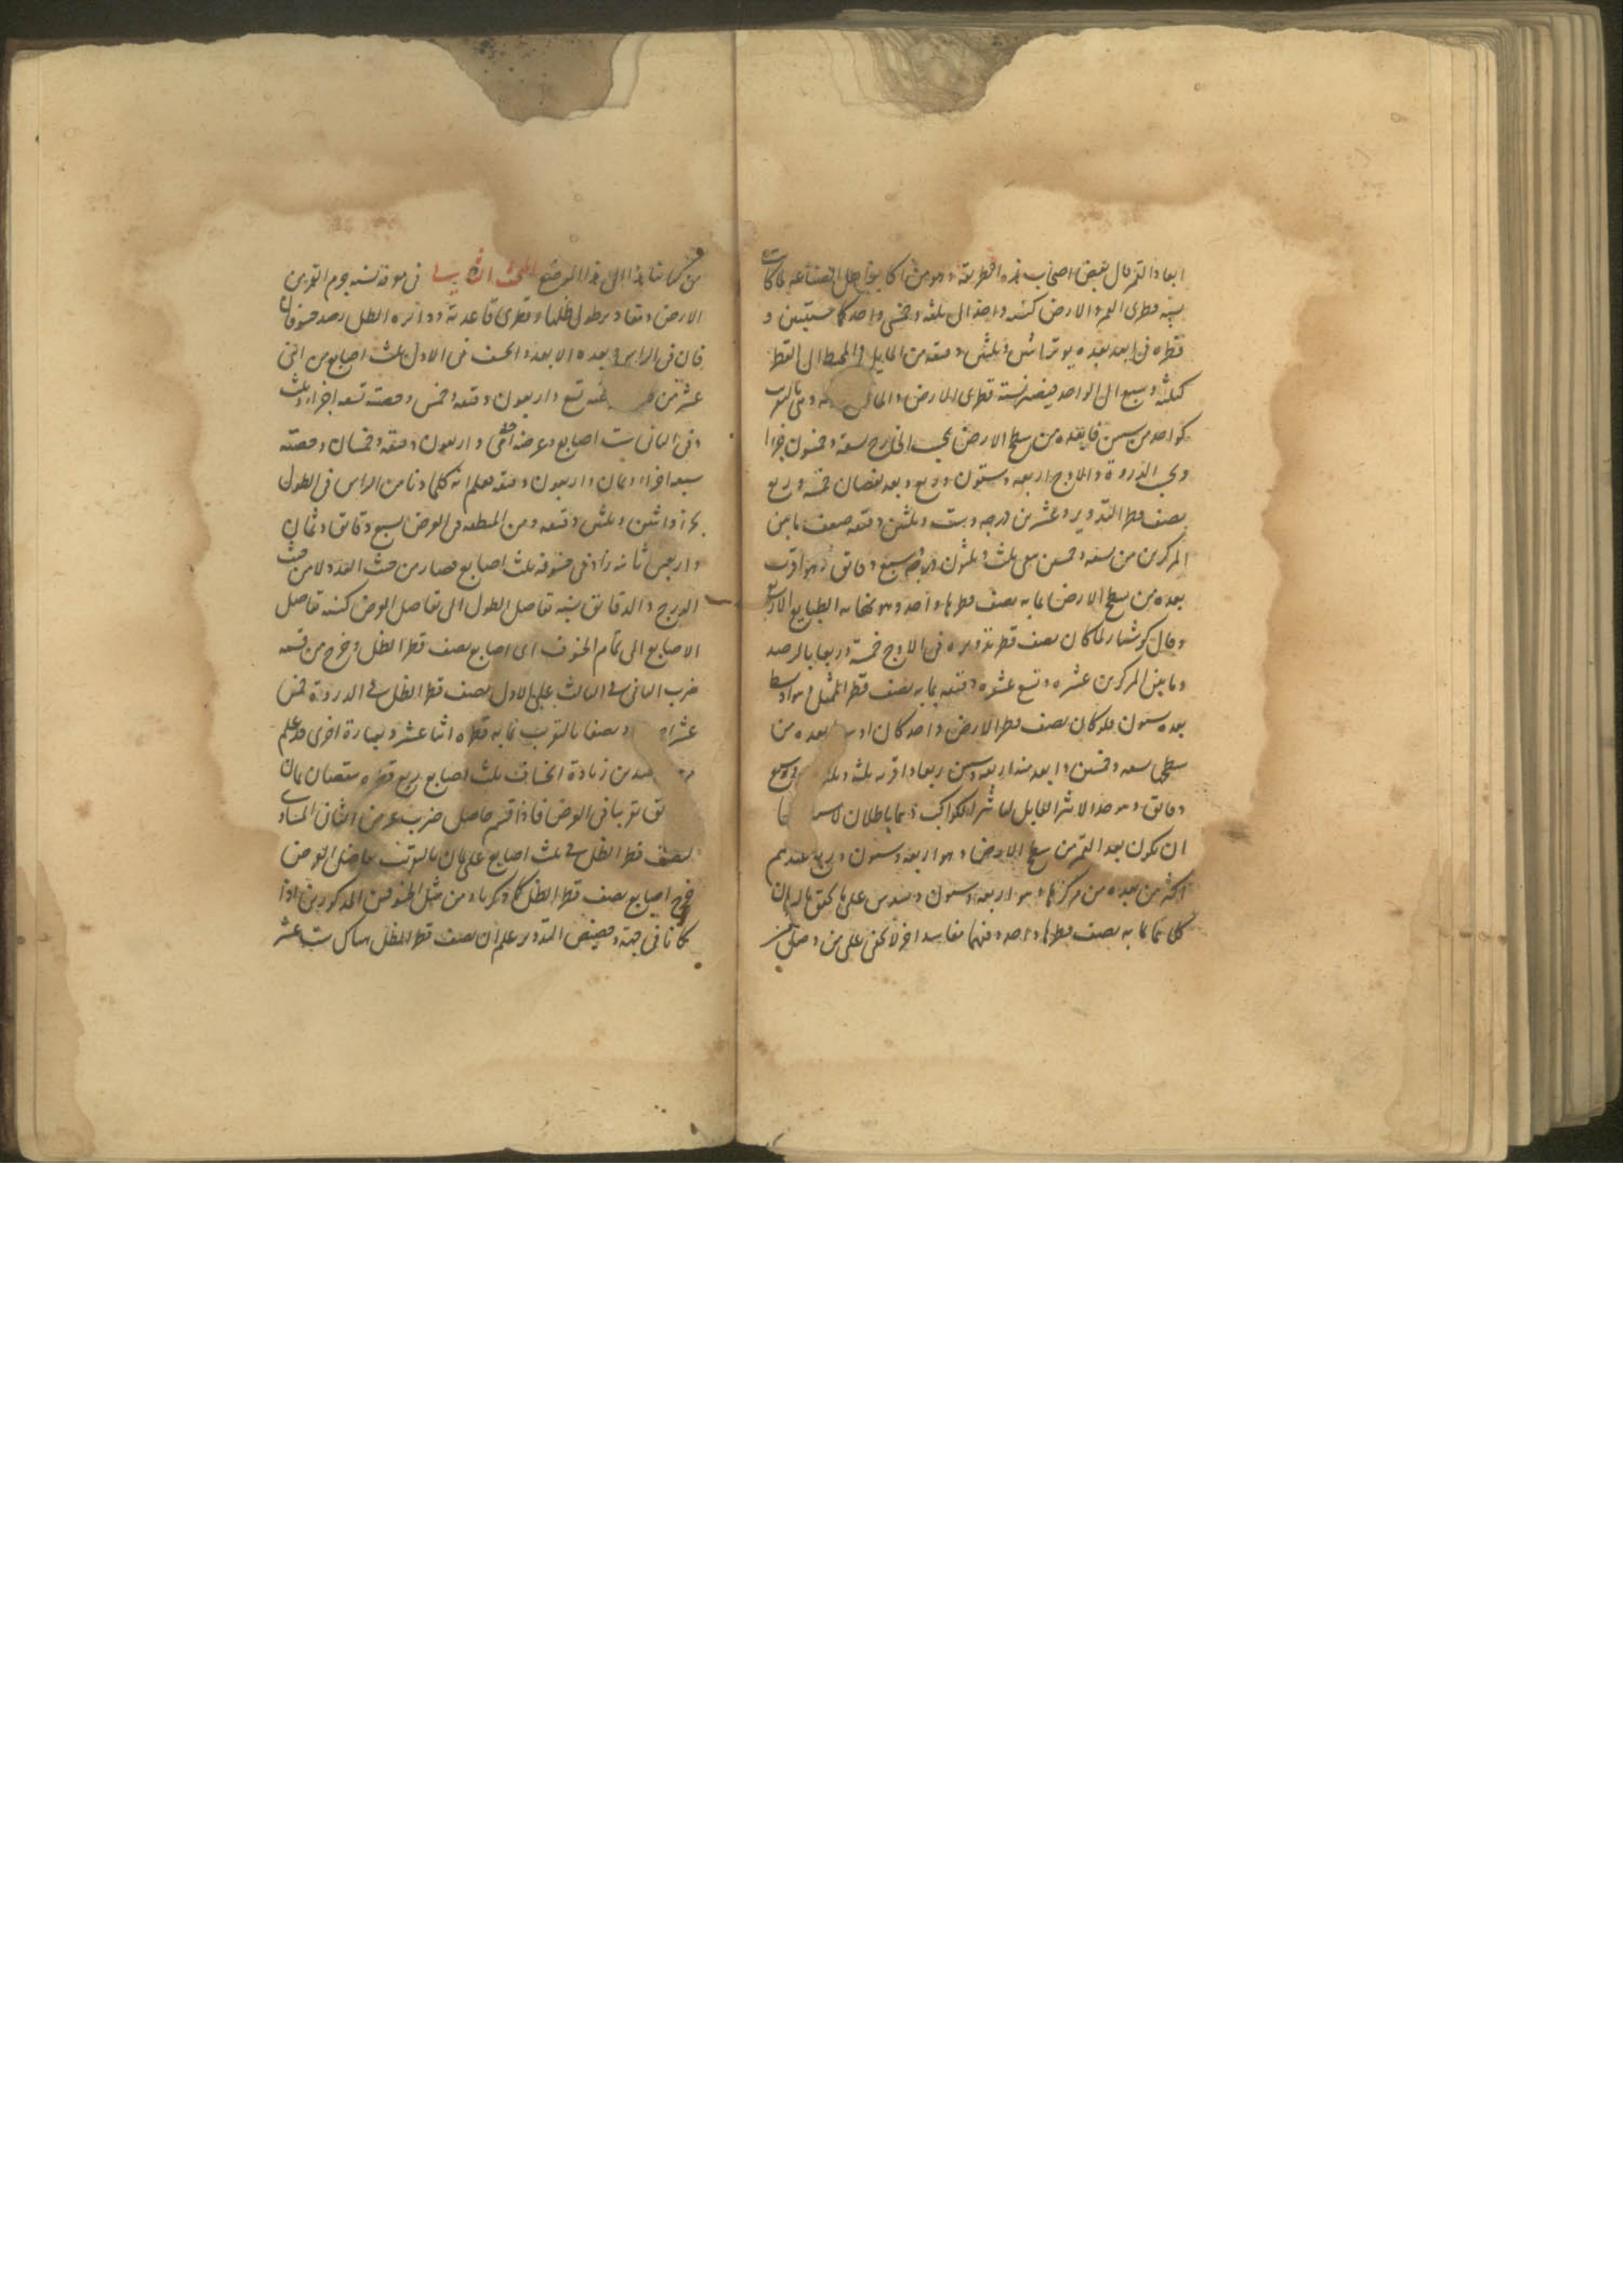 ابعاد القمر قال بعض اصحاب هذه الطريقة وهو من اكابر اهل الصناعة لما كانت
نسبة قطرى القمر والارض كنسبة واحد الى ثلثة وخمسى واحد كما ستبين و
قطره فى ابعد بعده يوتر اثنين وثلثين دقيقة من المايل والمحيط الى القطر
كثلثة وسبع الى الواحد فيضرب نسبة قطرى الارض
كواحد من ستين فابعده من سطح الارض بحسب الخارج تسعة وخمسون جزءا
وبحسب الذروة والاوج اربعة وستون وربع وبعد نقصان خمسة وربع
نصف قطر التدوير وعشرين درجة وست وثلثين دقيقة ضعف ما بين
المركزين من تسعة وخمسين بقى ثلث وثلثون درجة وسبع دقايق وهو اقرب
بعده من سطح الارض بما به نصف قطرها واحد وهو نهاية الطبايع الاربع
وقال كوشيار لما كان نصف قطر تدويره فى الاوج خمسة وربعا بالرصد
وما بين المركزين عشرة وتسع عشرة دقيقة بما به نصف قطر الممثل وهو اوسط
بعده ستون فلو كان نصف قطر الارض واحد كان اوسط بعده من
سطحها تسعة وخمسين وابعد منه اربعة وستين وربعا واقربه ثلثة وثلثين وسبع
دقايق وهو حد الاثير القابل لتاثير الكواكب وهما باطلان
ان يكون بعد القمر من سطح الارض وهو اربعة وستون وربع عندهم
اكثر من بعده من مركزها وهو اربعة وستون وسدس على ما تحقق بالبرهان
كلاهما بما به نصف قطرها واحد وفيهما مفاسد اخر لا تخفى على من وصل
من كتابنا هذا الى هذا الموضع البحث الثانى فى معرفة نسبة جرم القمر من
الارض ومقادير طول ظلها وقطرى قاعدته ودائرة الظل رصد خسوفان
كان فى الراس وبعده الابعد وانخسف فى الاول ثلث اصابع من اثنى
عشر من تسع واربعون دقيقة وخمس وحصته تسعة اجزاء وثلث
وفى الثانى ست اصابع وعرضه احدى واربعون دقيقة وخمسان وحصته
سبعة اجزاء وثمان واربعون دقيقة فعلم انه كلما دنا من الراس فى الطول
بجزء واثنين وثلثين دقيقة ومن المنطقة فى العرض بسبع دقايق وثمان
واربعين ثانية زاد فى خسوفه ثلث اصابع فصار من حيث العدد لا من حيث
الدرج والدقايق نسبة تفاضل الطول الى تفاضل العرض كنسبة تفاضل
الاصابع الى تمام الخسوف اى اصابع نصف قطر الظل وخرج من قسمة
ضرب الثانى فى الثالث على الاول نصف قطر الظل فى الذروة خمس
عشرة ونصفا بالتقريب بما به قطره اثنا عشر وبعبارة اخرى قد علم
من زيادة انخساف ثلث اصابع ربع قطره بنقصان ثمان
دقايق تقريبا فى العرض فاذا قسم حاصل ضرب عرض الثانى المساوى
لنصف قطر الظل فى ثلث اصابع على ثمان بالتقريب تفاضل العرض
خرج اصابع نصف قطر الظل كما ذكرنا ومن مثل الخسوفين المذكورين اذا
كانا فى جهة وحضيض التدوير علم ان نصف قطر الظل هناك ست عشر